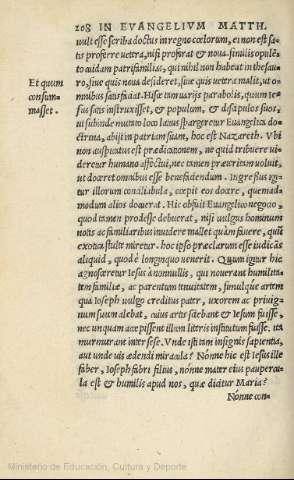 208 IN EVANGELIVM MATTH.
vult esse scriba doctus in regno cœlorum, ei non est sa-
tis proferre vetera, nisi proferat & nova: similis opulẽ-
to cuidam patrifamilias, qui nihil non habeat in thesau-
ro, sive quis nova desideret, sive quis vetera malit, ut o-
Et quum
mnibus satisfaciat. Hisce tam variis parabolis, quum Ie-
consum-
sus satis instruxisset, & populum, & discipulos suos,
masset.
ut subinde mutato loco latius spargeretur Evangelica do-
ctrina, abijt in patriam suam, hoc est Nazareth. Vbi
non auspicatus est prædicationem, ne quid tribuere vi-
deretur humano affectui, nec tamen præteritam voluit,
ut doceret omnibus esse benefaciendum. Ingressus igi-
tur illorum conciliabula, cœpit eos docere, quemad-
modum alios docuerat. Hic obfuit Evangelico negocio,
quod tamen prodesse debuerat, nisi vulgus hominum
notis ac familiaribus invidere mallet quàm favere, quũ
exotica stulte miretur. hoc ipso præclarum esse iudicãs
aliquid, quod è longinquo venerit. Quum igitur hic
agnosceretur Iesus à nonnullis, qui noverant humilita-
tem familiæ, ac parentum tenuitatem, simulque artem
qua Ioseph vulgo creditus pater, uxorem ac privig-
num suum alebat, cuius artis sciebant & Iesum fuisse,
nec unquam accepissent illum literis institutum fuisse. ita
murmurant inter sese. Vnde isti tam insignis sapientia,
aut unde vis ædendi miracula? Nónne hic est Iesus ille
faber, Ioseph fabri filius, nónne mater eius paupercu-
la est & humilis apud nos, quæ dicitur Maria?
Nonne con-
Ministerio de Educación, Cultura y Deporte